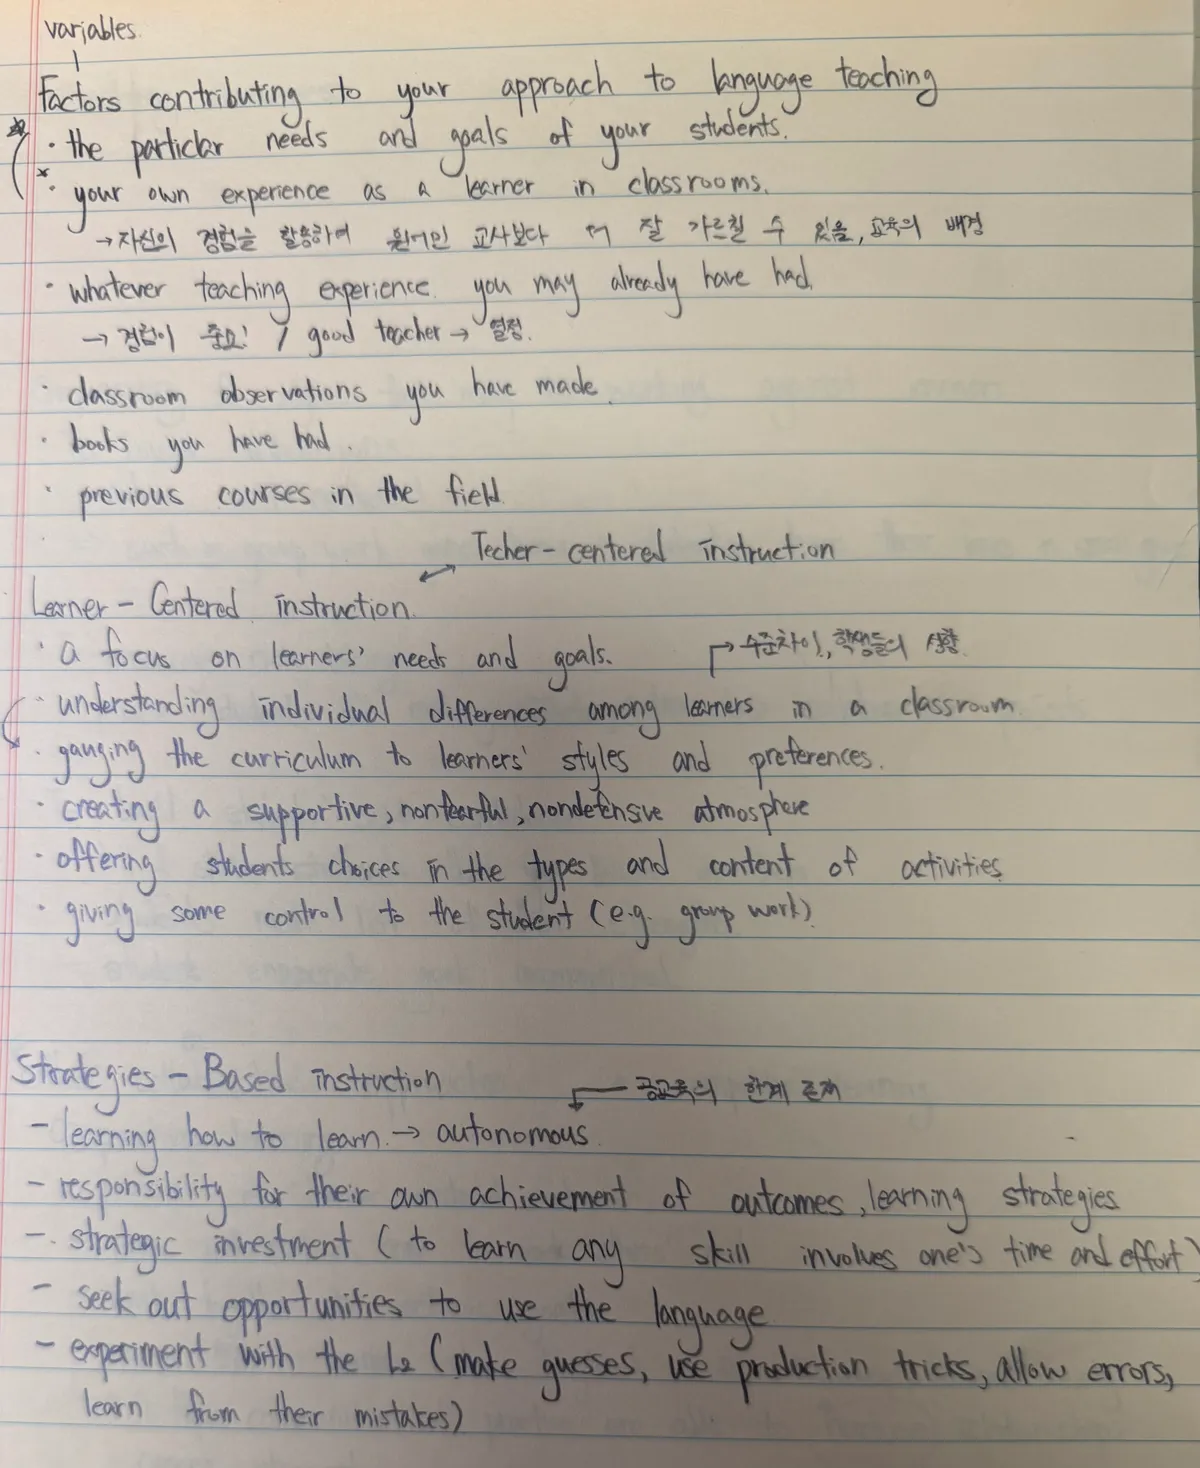 variables.
Factors contributing to your approach to language teaching
· the particlar needs and goals of your students.
· your own experience as a learner in classrooms.
→ 자신의 경험을 활용하여 원어민 교사보다 더 잘 가르칠 수 있음, 교육의 배경
· whatever teaching experience you may already have had.
→ 경험이 중요! / good teacher → 열정.
· classroom observations you have made.
· books you have had.
· previous courses in the field.
Techer - centered instruction
Learner - Centered instruction.
· a focus on learners' needs and goals.
→ 수준차이, 학생들의 상황.
· understanding individual differences among learners in a classroom.
· gauging the curriculum to learners' styles and preferences.
· creating a supportive, nonfearful, nondefensive atmosphere
· offering students choices in the types and content of activities
· giving some control to the student (e.g. group work)
Strategies - Based instruction
공교육의 한계 존재
- learning how to learn. → autonomous.
- responsibility for their own achievement of outcomes, learning strategies
-. strategic investment (to learn any skill involves one's time and effort)
- seek out opportunities to use the language
- experiment with the L2 (make guesses, use production tricks, allow errors,
learn from their mistakes)